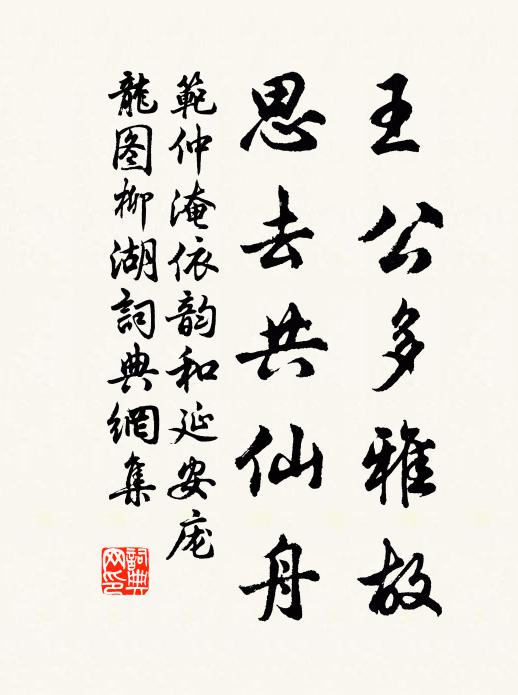 王公多雅故
思去共仙舟
範仲淹依韵和延安庞
龍图柳湖詞典網集
詞典网印